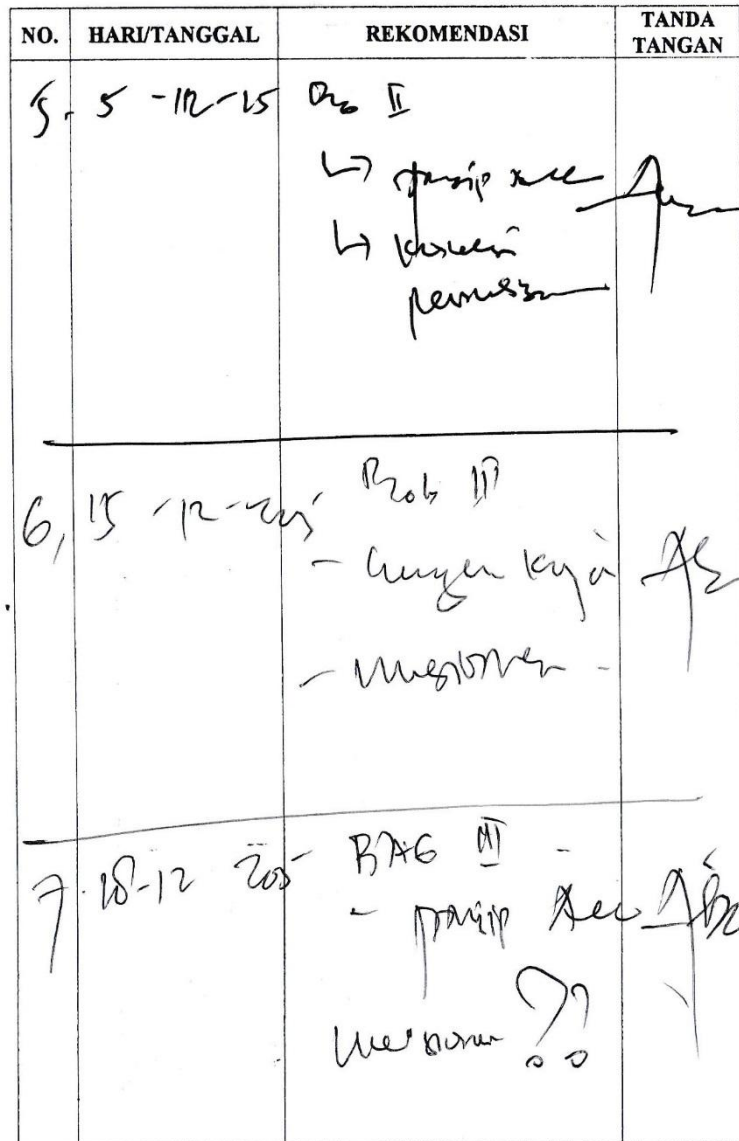 NO. HARI/TANGGAL REKOMENDASI TANDA TANGAN
5. 5-12-15 Bab II
↳ prinsip acc
↳ 
6, 15-12-2015 Bab III
- Kerja
- kuesioner -
7. 18-12 2015 BAB III -
- prinsip Acc
kuesioner ??